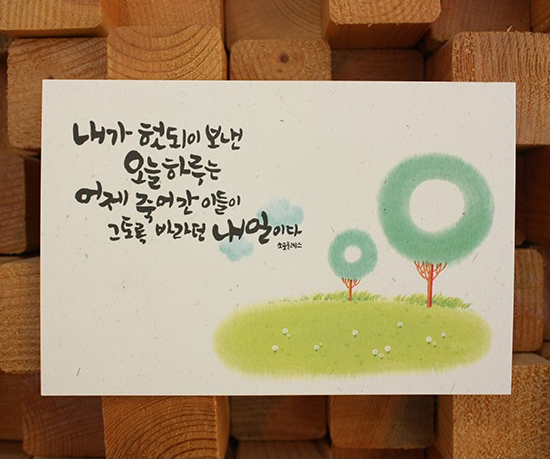 내가 헛되이 보낸
오늘하루는
어제 죽어간 이들이
그토록 바라던 내일이다
소포클레스